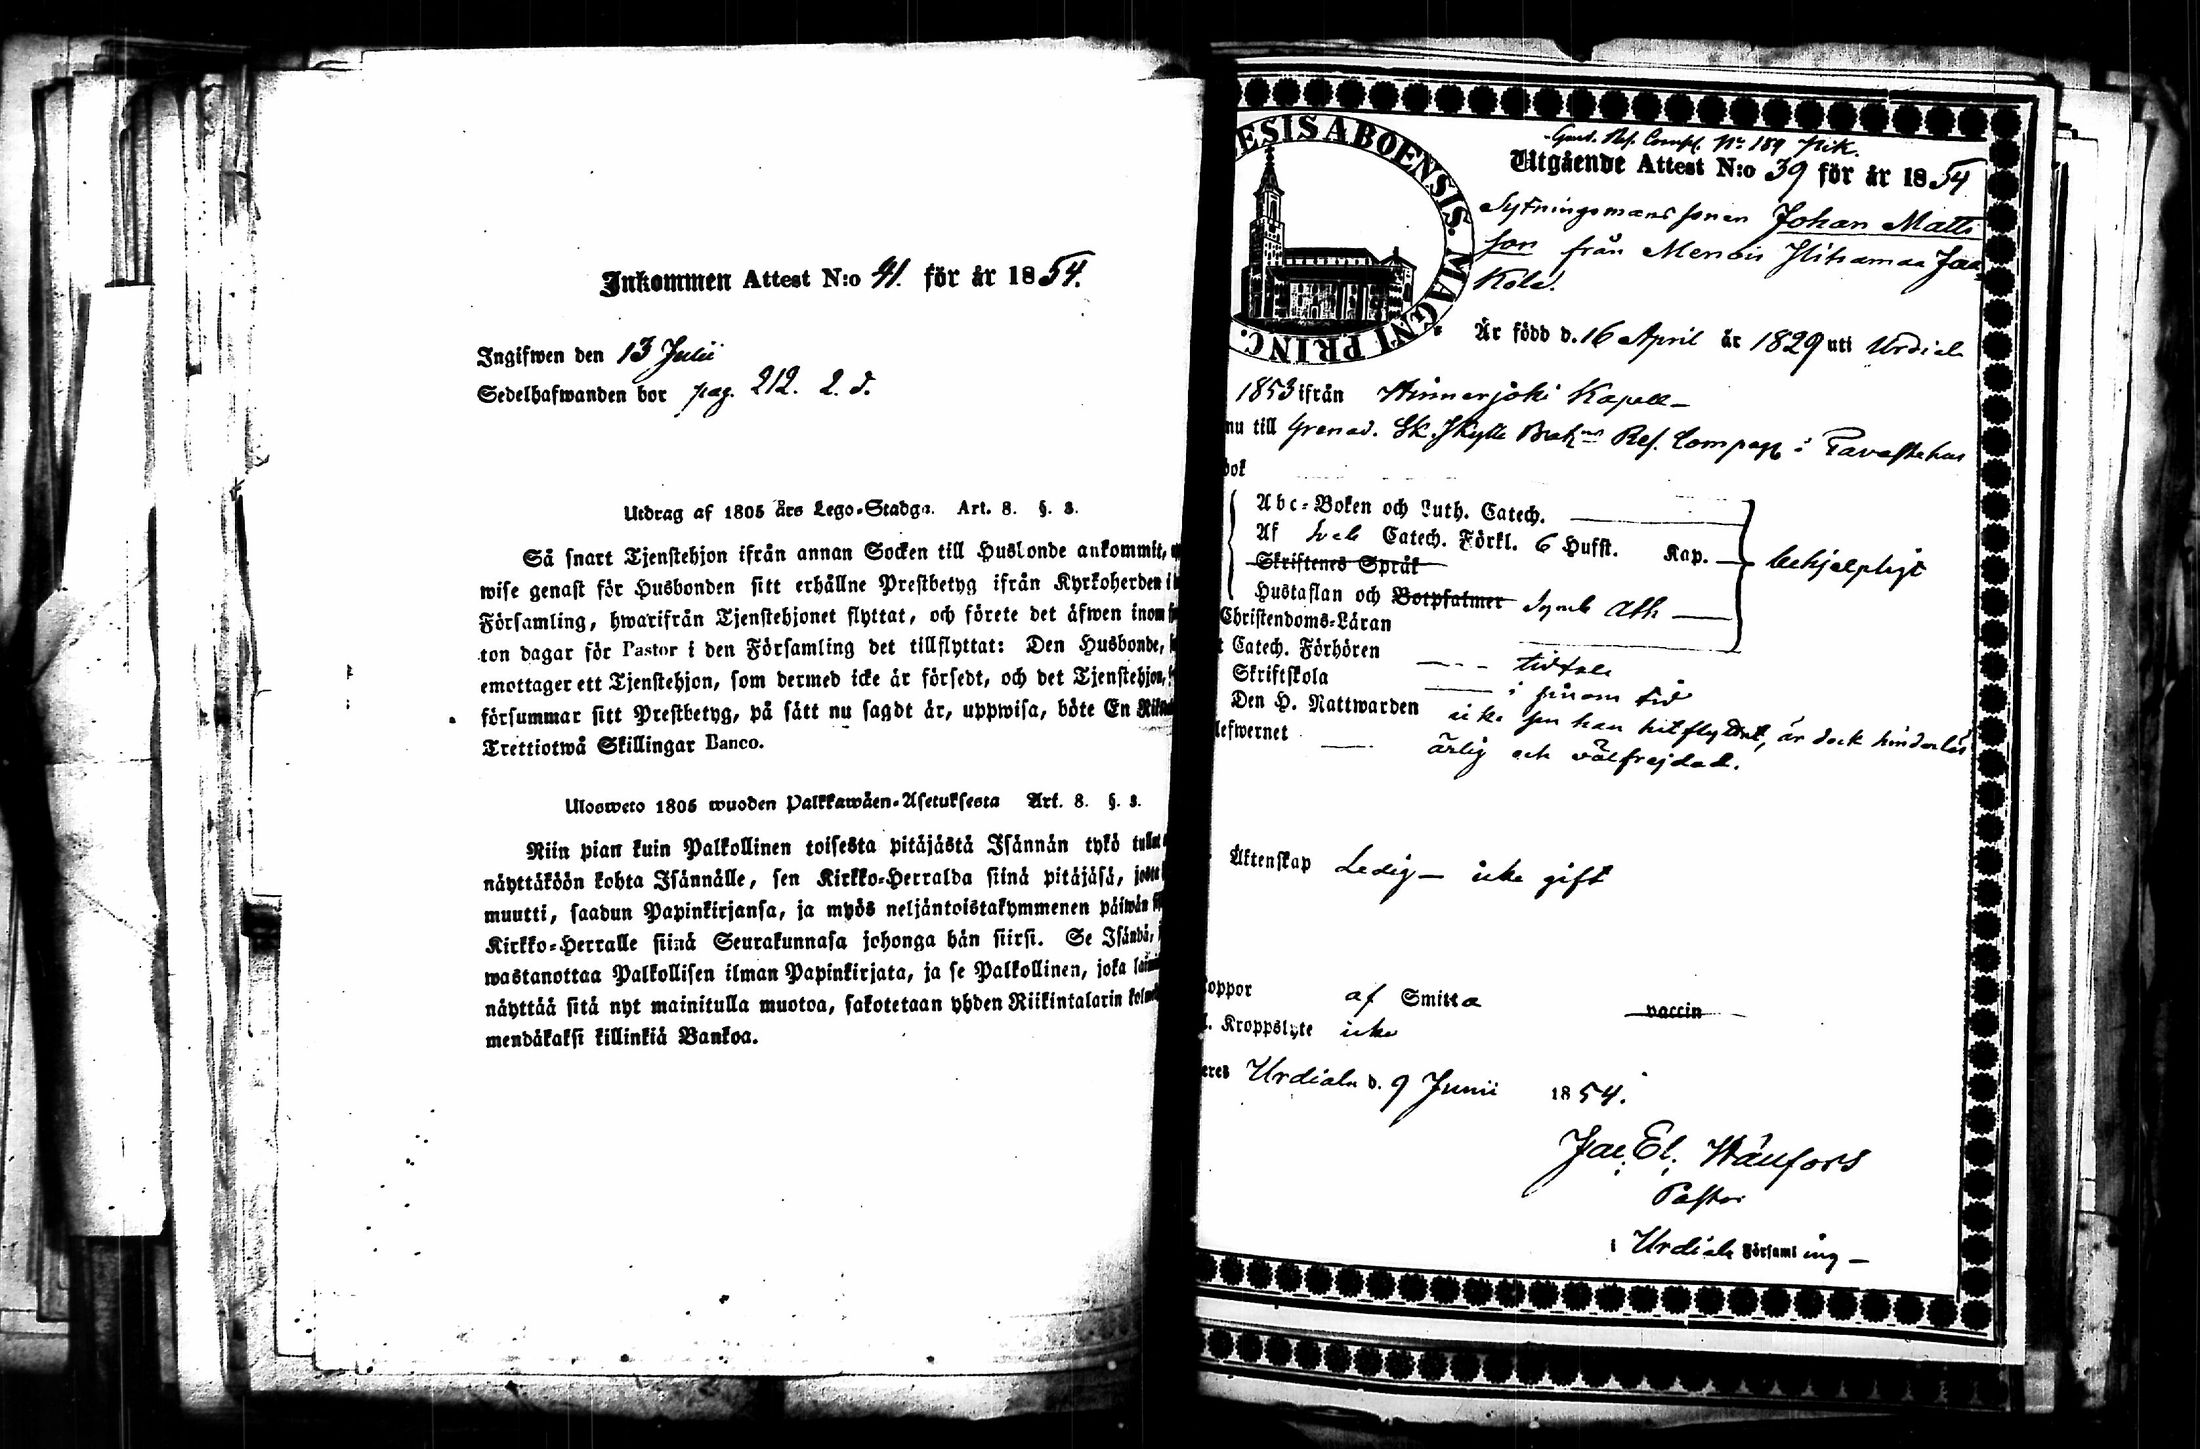 Inkommen Attest N:o 41. för år 1854.
Ingifwen den 13 Julii
Sedelhafwanden bor pag. 212. 2. d.
Utdrag af 1805 års Lego-Stadga. Art. 8. §. 3.
Så snart Tjenstehjon ifrån annan Socken till Husbonde ankommit,
wise genast för Husbonden sitt erhållne Prestbetyg ifrån Kyrkoherden i
Församling, hwarifrån Tjenstehjonet flyttat, och förete det äfwen inom
ton dagar för Pastor i den Församling det tillflyttat: Den Husbonde,
emottager ett Tjenstehjon, som dermed icke är försedt, och det Tjenstehjon,
försummar sitt Prestbetyg, på sätt nu sagdt är, uppwisa, böte En
Trettiotwå Skillingar Banco.
Ulosweto 1805 wuoden Palkkawäen-Asetuksesta Art. 8. §. 3.
Niin pian kuin Palkollinen toisesta pitäjästä Isännän tykö
näyttäköön kohta Isännälle, sen Kirkko-Herralda siinä pitäjäsä,
muutti, saadun Papinkirjansa, ja myös neljäntoistakymmenen päiwän
Kirkko-Herralle siinä Seurakunnasa johonga hän siirsi. Se Isändä,
wastanottaa Palkollisen ilman Papinkirjata, ja se Palkollinen, joka
näyttää sitä nyt mainitulla muotoa, sakotetaan yhden Riikintalarin
mendäkaksi killinkiä Bankoa.
ESIS ABOENSIS. MAGNI PRINC.
Ref. Comp. No 189
Utgående Attest N:o 39 för år 1854
Sytningsmanssonen Johan Matts
son från Menois
Kola.
Är född d. 16 April år 1829 uti Urdiala
1853 ifrån Hinnerjoki Kapell
nu till Grenad. Sk. Ref. Compag i Tavastehus
bok
Abc-Boken och Luth. Catech.
Af Catech. Förkl. 6 Hufst. Kap. behjelpligt
Skriftenes Språk
Hustaflan och Botpsalmer Symb Ath
Christendoms-Läran
Catech. Förhören
Skriftskola i sinom tid
Den H. Nattwarden icke sen han hitflyttat, är dock hinderlös
lefwernet ärlig och välfrejdad.
Äktenskap Ledig icke gift
koppor af Smitta vaccin
Kroppslyte icke
Urdiala d. 9 Junii 1854.
Jac. El.
Pastor
i Urdiala Församling